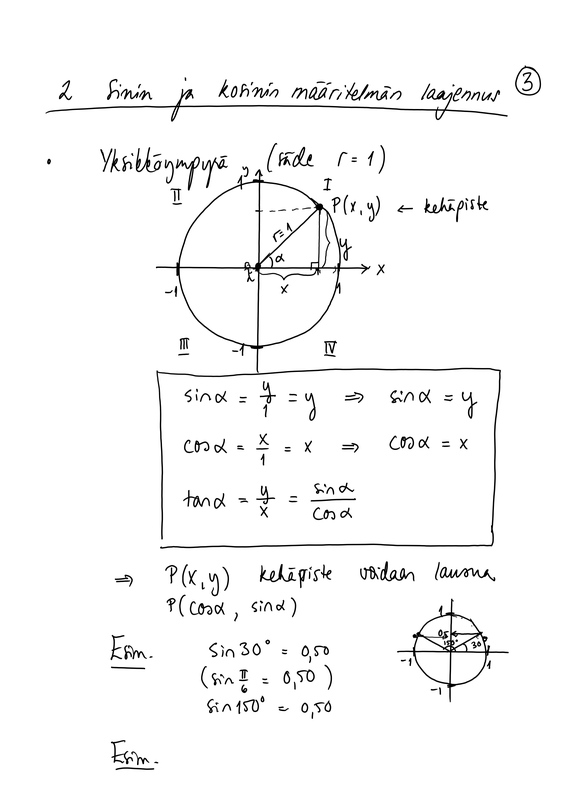 2 Sinin ja kosinin määritelmän laajennus ③
• Yksikköympyrä (säde r = 1)
y
1
I
II
P(x,y) ← kehäpiste
r=1
y
α
x
-1
x
1
III
-1
IV
sinα = y/1 = y ⇒ sinα = y
cosα = x/1 = x ⇒ cosα = x
tanα = y/x = sinα/cosα
⇒ P(x,y) kehäpiste voidaan lausua
P(cosα, sinα)
Esim. sin30° = 0,50
(sin π/6 = 0,50)
sin150° = 0,50
1
0,5
150°
30°
-1
1
-1
Esim.